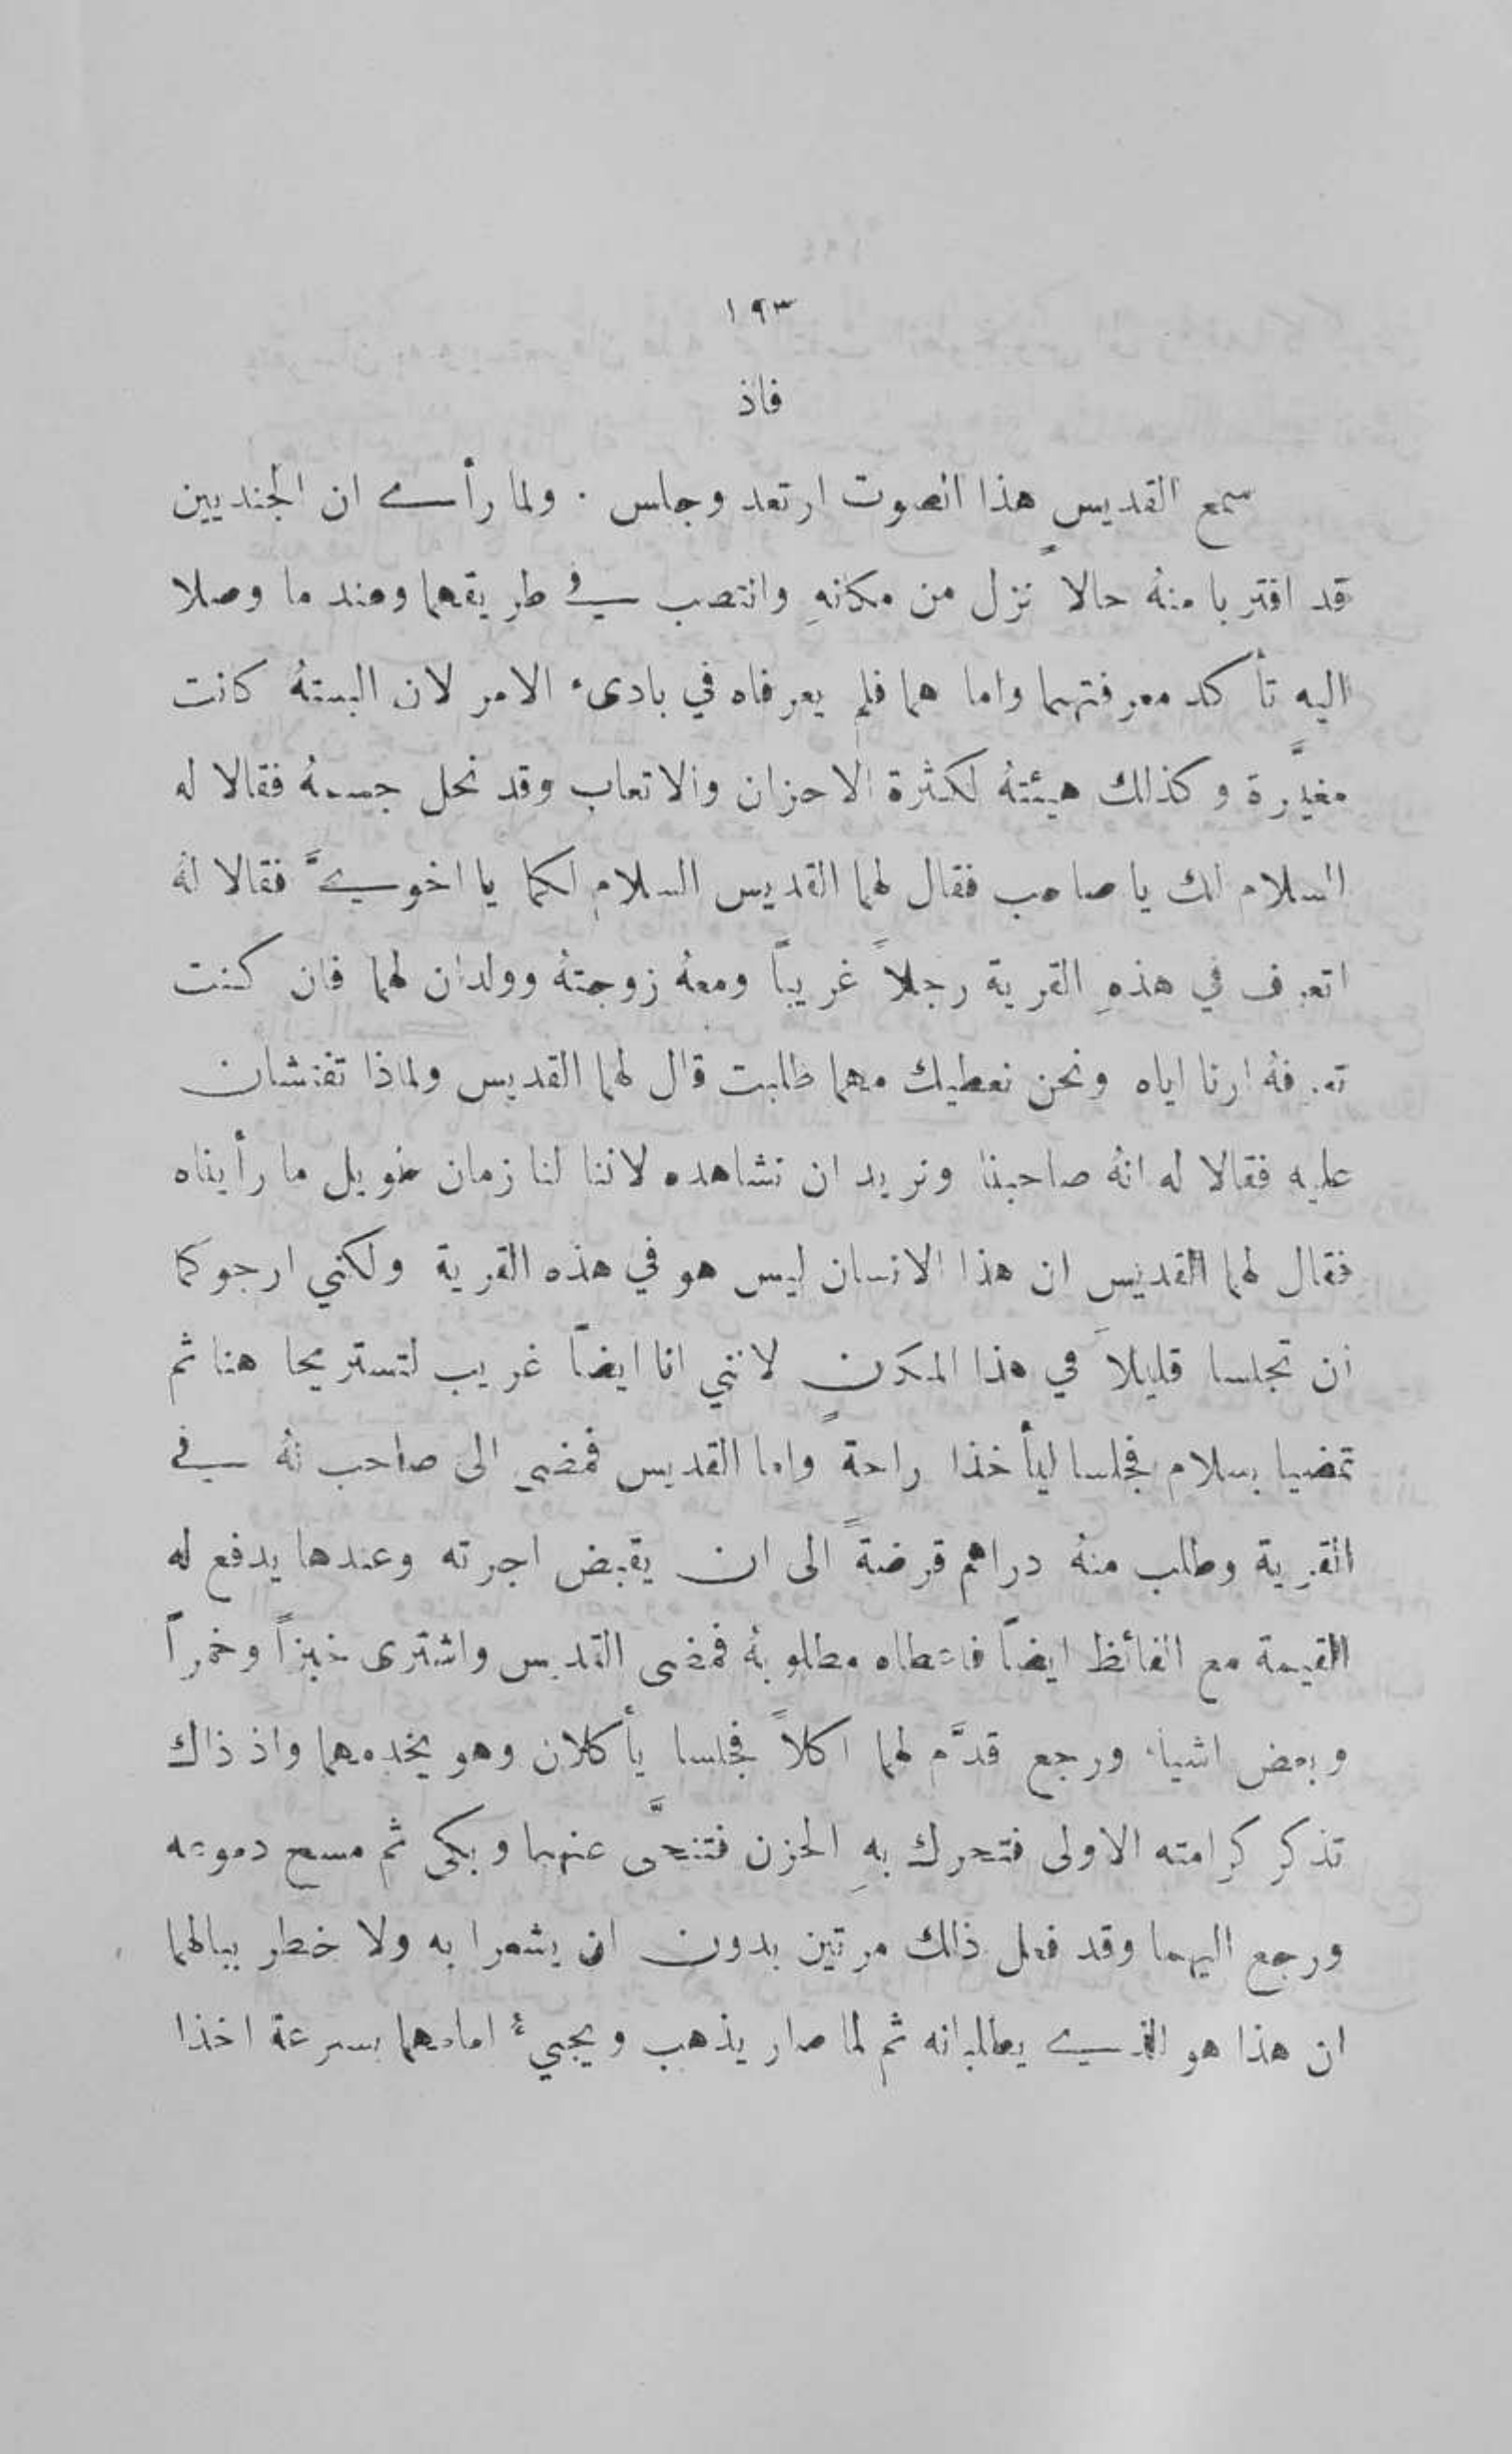 ١٩٣
فاذ
سمع القديس هذا الصوت ارتعد وجلس . ولما رأى ان الجنديين
قد اقتربا منهُ حالاً نزل من مكانهِ وانتصب في طريقهما وعند ما وصلا
اليه تأكد معرفتهما واما هما فلم يعرفاه في بادىء الامر لان البستهُ كانت
مغيَّرة وكذلك هيئتهُ لكثرة الاحزان والاتعاب وقد نحل جسمهُ فقالا له
السلام لك يا صاحب فقال لهما القديس السلام لكما يا اخويَّ فقالا لهُ
اتعرف في هذهِ القرية رجلاً غريباً ومعهُ زوجتهُ وولدان لهما فان كنت
تعرفهُ ارنا اياه ونحن نعطيك مهما طلبت قال لهما القديس ولماذا تفتشان
عليه فقالا له انهُ صاحبنا ونريد ان نشاهده لاننا لنا زمان طويل ما رأيناه
فقال لهما القديس ان هذا الانسان ليس هو في هذه القرية ولكني ارجوكما
ان تجلسا قليلاً في هذا المكان لانني انا ايضاً غريب لتستريحا هنا ثم
تمضيا بسلام فجلسا ليأخذا راحةً واما القديس فمضى الى صاحب لهُ في
القرية وطلب منهُ دراهم قرضةً الى ان يقبض اجرته وعندها يدفع له
القيمة مع الفائظ ايضاً فاعطاه مطلوبهُ فمضى القديس واشترى خبزاً وخمراً
وبعض اشياء ورجع قدَّم لهما اكلاً فجلسا يأكلان وهو يخدمهما واذ ذاك
تذكر كرامته الاولى فتحرك بهِ الحزن فتنحَّى عنهما وبكى ثم مسح دموعه
ورجع اليهما وقد فعل ذلك مرتين بدون ان يشعرا به ولا خطر ببالهما
ان هذا هو الذي يطلبانه ثم لما صار يذهب ويجيءُ امامهما بسرعة اخذا